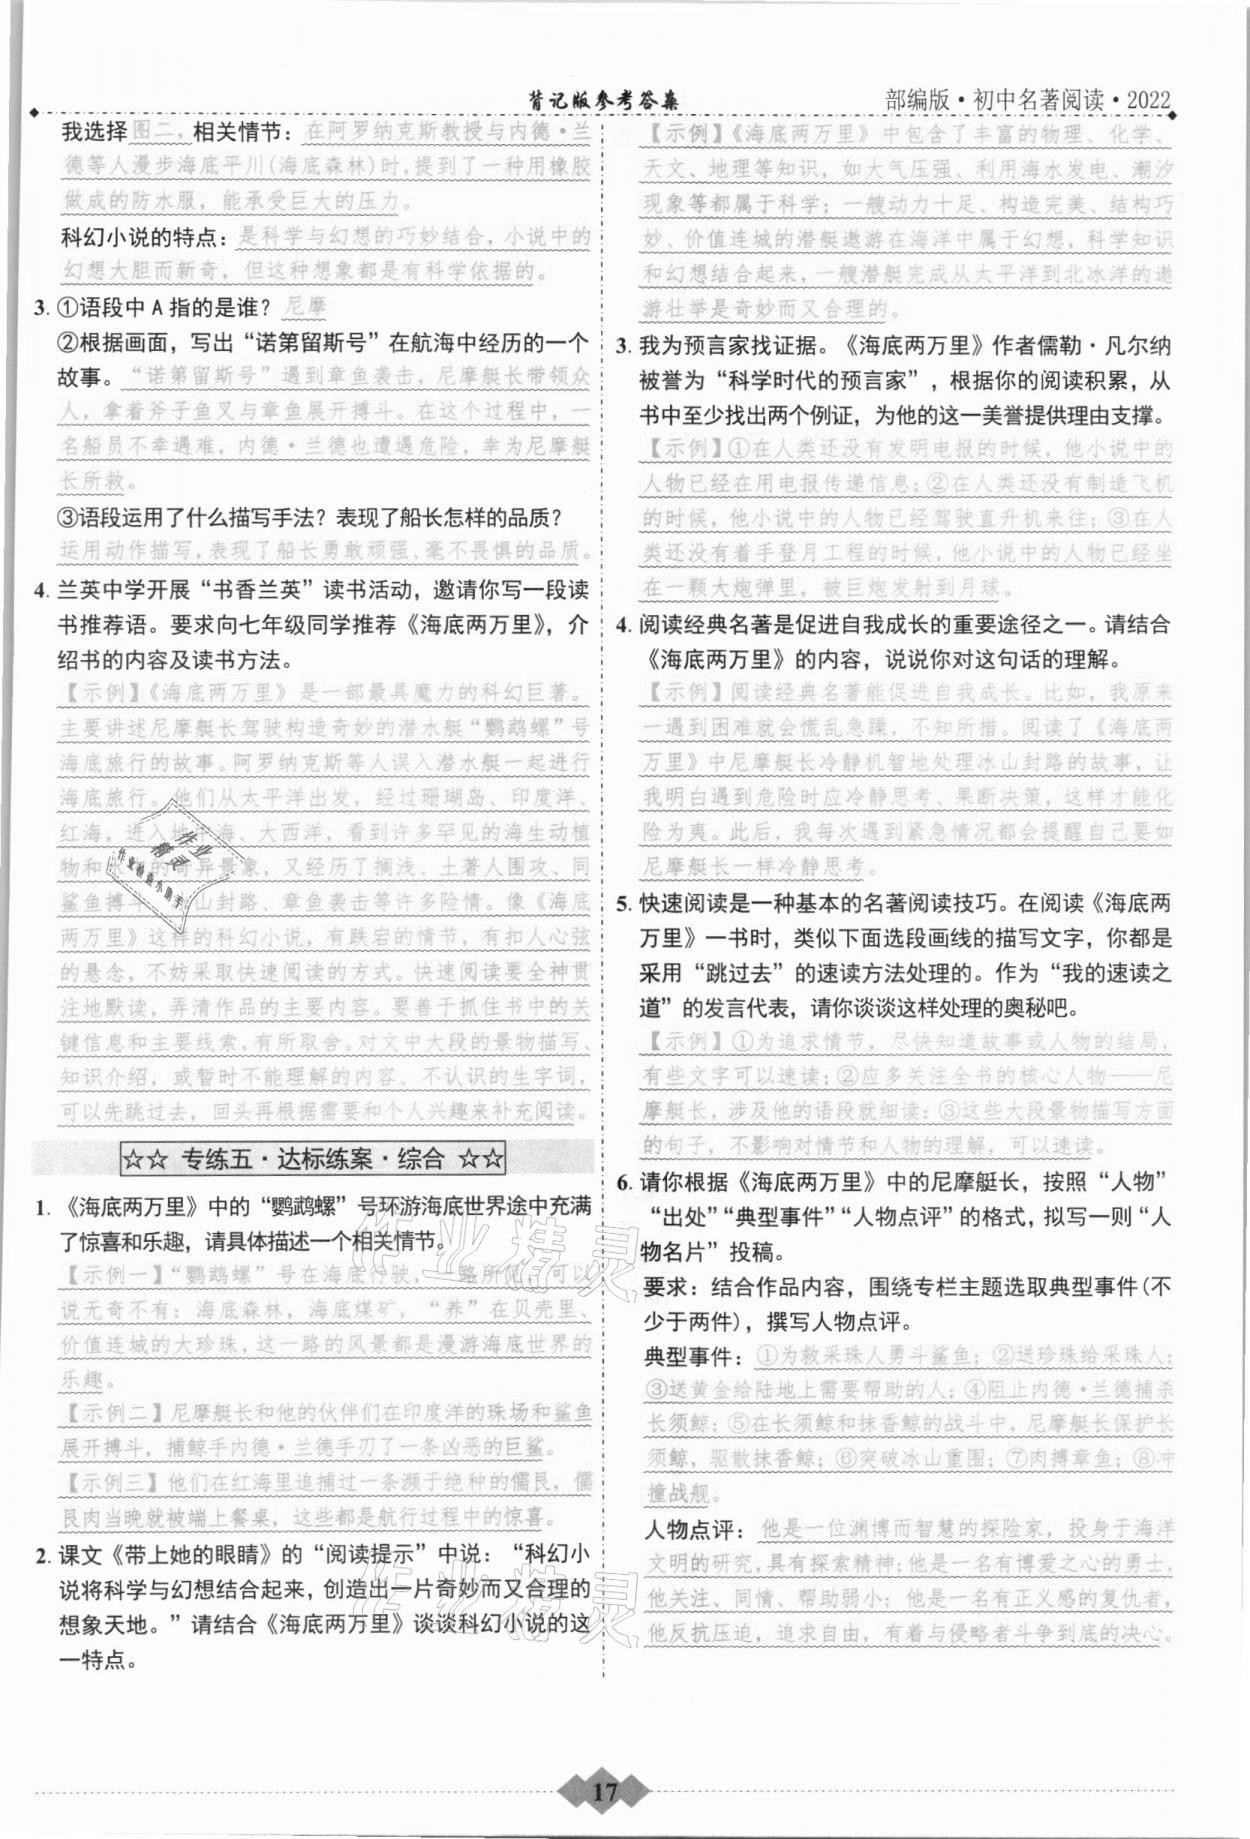 背记版参考答案
部编版·初中名著阅读·2022
我选择图二,相关情节:在阿罗纳克斯教授与内德·兰
德等人漫步海底平川(海底森林)时,提到了一种用橡胶
做成的防水服,能承受巨大的压力。
科幻小说的特点:是科学与幻想的巧妙结合,小说中的
幻想大胆而新奇,但这种想象都是有科学依据的。
3. ①语段中 A 指的是谁? 尼摩
②根据画面,写出“诺第留斯号”在航海中经历的一个
故事。“诺第留斯号”遇到章鱼袭击,尼摩艇长带领众
人,拿着斧子鱼叉与章鱼展开搏斗。在这个过程中,一
名船员不幸遇难,内德·兰德也遭遇危险,幸为尼摩艇
长所救。
③语段运用了什么描写手法?表现了船长怎样的品质?
运用动作描写,表现了船长勇敢顽强、毫不畏惧的品质。
4. 兰英中学开展“书香兰英”读书活动,邀请你写一段读
书推荐语。要求向七年级同学推荐《海底两万里》,介
绍书的内容及读书方法。
【示例】《海底两万里》是一部最具魔力的科幻巨著。
主要讲述尼摩艇长驾驶构造奇妙的潜水艇“鹦鹉螺”号
海底旅行的故事。阿罗纳克斯等人误入潜水艇一起进行
海底旅行。他们从太平洋出发,经过珊瑚岛、印度洋、
红海,进入地中海、大西洋,看到许多罕见的海生动植
物和水中的奇异景象,又经历了搁浅、土著人围攻、同
鲨鱼搏斗、冰山封路、章鱼袭击等许多险情。像《海底
两万里》这样的科幻小说,有跌宕的情节,有扣人心弦
的悬念,不妨采取快速阅读的方式。快速阅读要全神贯
注地默读,弄清作品的主要内容。要善于抓住书中的关
键信息和主要线索,有所取舍。对文中大段的景物描写、
知识介绍,或暂时不能理解的内容、不认识的生字词,
可以先跳过去,回头再根据需要和个人兴趣来补充阅读。
☆☆ 专练五·达标练案·综合 ☆☆
1. 《海底两万里》中的“鹦鹉螺”号环游海底世界途中充满
了惊喜和乐趣,请具体描述一个相关情节。
【示例一】“鹦鹉螺”号在海底行驶,一路所见,可以
说无奇不有:海底森林,海底煤矿,“养”在贝壳里、
价值连城的大珍珠,这一路的风景都是漫游海底世界的
乐趣。
【示例二】尼摩艇长和他的伙伴们在印度洋的珠场和鲨鱼
展开搏斗,捕鲸手内德·兰德手刃了一条凶恶的巨鲨。
【示例三】他们在红海里追捕过一条濒于绝种的儒艮,儒
艮肉当晚就被端上餐桌,这些都是航行过程中的惊喜。
2. 课文《带上她的眼睛》的“阅读提示”中说:“科幻小
说将科学与幻想结合起来,创造出一片奇妙而又合理的
想象天地。”请结合《海底两万里》谈谈科幻小说的这
一特点。
【示例】《海底两万里》中包含了丰富的物理、化学、
天文、地理等知识,如大气压强、利用海水发电、潮汐
现象等都属于科学;一艘动力十足、构造完美、结构巧
妙、价值连城的潜艇遨游在海洋中属于幻想,科学知识
和幻想结合起来,一艘潜艇完成从太平洋到北冰洋的遨
游壮举是奇妙而又合理的。
3. 我为预言家找证据。《海底两万里》作者儒勒·凡尔纳
被誉为“科学时代的预言家”,根据你的阅读积累,从
书中至少找出两个例证,为他的这一美誉提供理由支撑。
【示例】①在人类还没有发明电报的时候,他小说中的
人物已经在用电报传递信息;②在人类还没有制造飞机
的时候,他小说中的人物已经驾驶直升机来往;③在人
类还没有着手登月工程的时候,他小说中的人物已经坐
在一颗大炮弹里,被巨炮发射到月球。
4. 阅读经典名著是促进自我成长的重要途径之一。请结合
《海底两万里》的内容,说说你对这句话的理解。
【示例】阅读经典名著能促进自我成长。比如,我原来
一遇到困难就会慌乱急躁,不知所措。阅读了《海底两
万里》中尼摩艇长冷静机智地处理冰山封路的故事,让
我明白遇到危险时应冷静思考、果断决策,这样才能化
险为夷。此后,我每次遇到紧急情况都会提醒自己要如
尼摩艇长一样冷静思考。
5. 快速阅读是一种基本的名著阅读技巧。在阅读《海底两
万里》一书时,类似下面选段画线的描写文字,你都是
采用“跳过去”的速读方法处理的。作为“我的速读之
道”的发言代表,请你谈谈这样处理的奥秘吧。
【示例】①为追求情节,尽快知道故事或人物的结局,
有些文字可以速读;②应多关注全书的核心人物——尼
摩艇长,涉及他的语段就细读;③这些大段景物描写方面
的句子,不影响对情节和人物的理解,可以速读。
6. 请你根据《海底两万里》中的尼摩艇长,按照“人物”
“出处”“典型事件”“人物点评”的格式,拟写一则“人
物名片”投稿。
要求:结合作品内容,围绕专栏主题选取典型事件(不
少于两件),撰写人物点评。
典型事件:①为救采珠人勇斗鲨鱼;②送珍珠给采珠人;
③送黄金给陆地上需要帮助的人;④阻止内德·兰德捕杀
长须鲸;⑤在长须鲸和抹香鲸的战斗中,尼摩艇长保护长
须鲸,驱散抹香鲸;⑥突破冰山重围;⑦肉搏章鱼;⑧冲
撞战舰。
人物点评:他是一位渊博而智慧的探险家,投身于海洋
文明的研究,具有探索精神;他是一名有博爱之心的勇士,
他关注、同情、帮助弱小;他是一名有正义感的复仇者,
他反抗压迫,追求自由,有着与侵略者斗争到底的决心。
作业
精灵
作业检查小助手
作业精灵
作业精灵
17